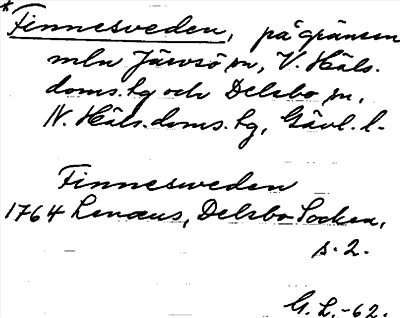 * Finnesveden, på gränsen
mln Järvsö sn, V. Häls.
doms.hg och Delsbo sn,
N. Häls.doms.hg, Gävl.l.
Finnesweden
1764 Lenæus, Delsbo Socken,
s. 2.
G. L. -62.